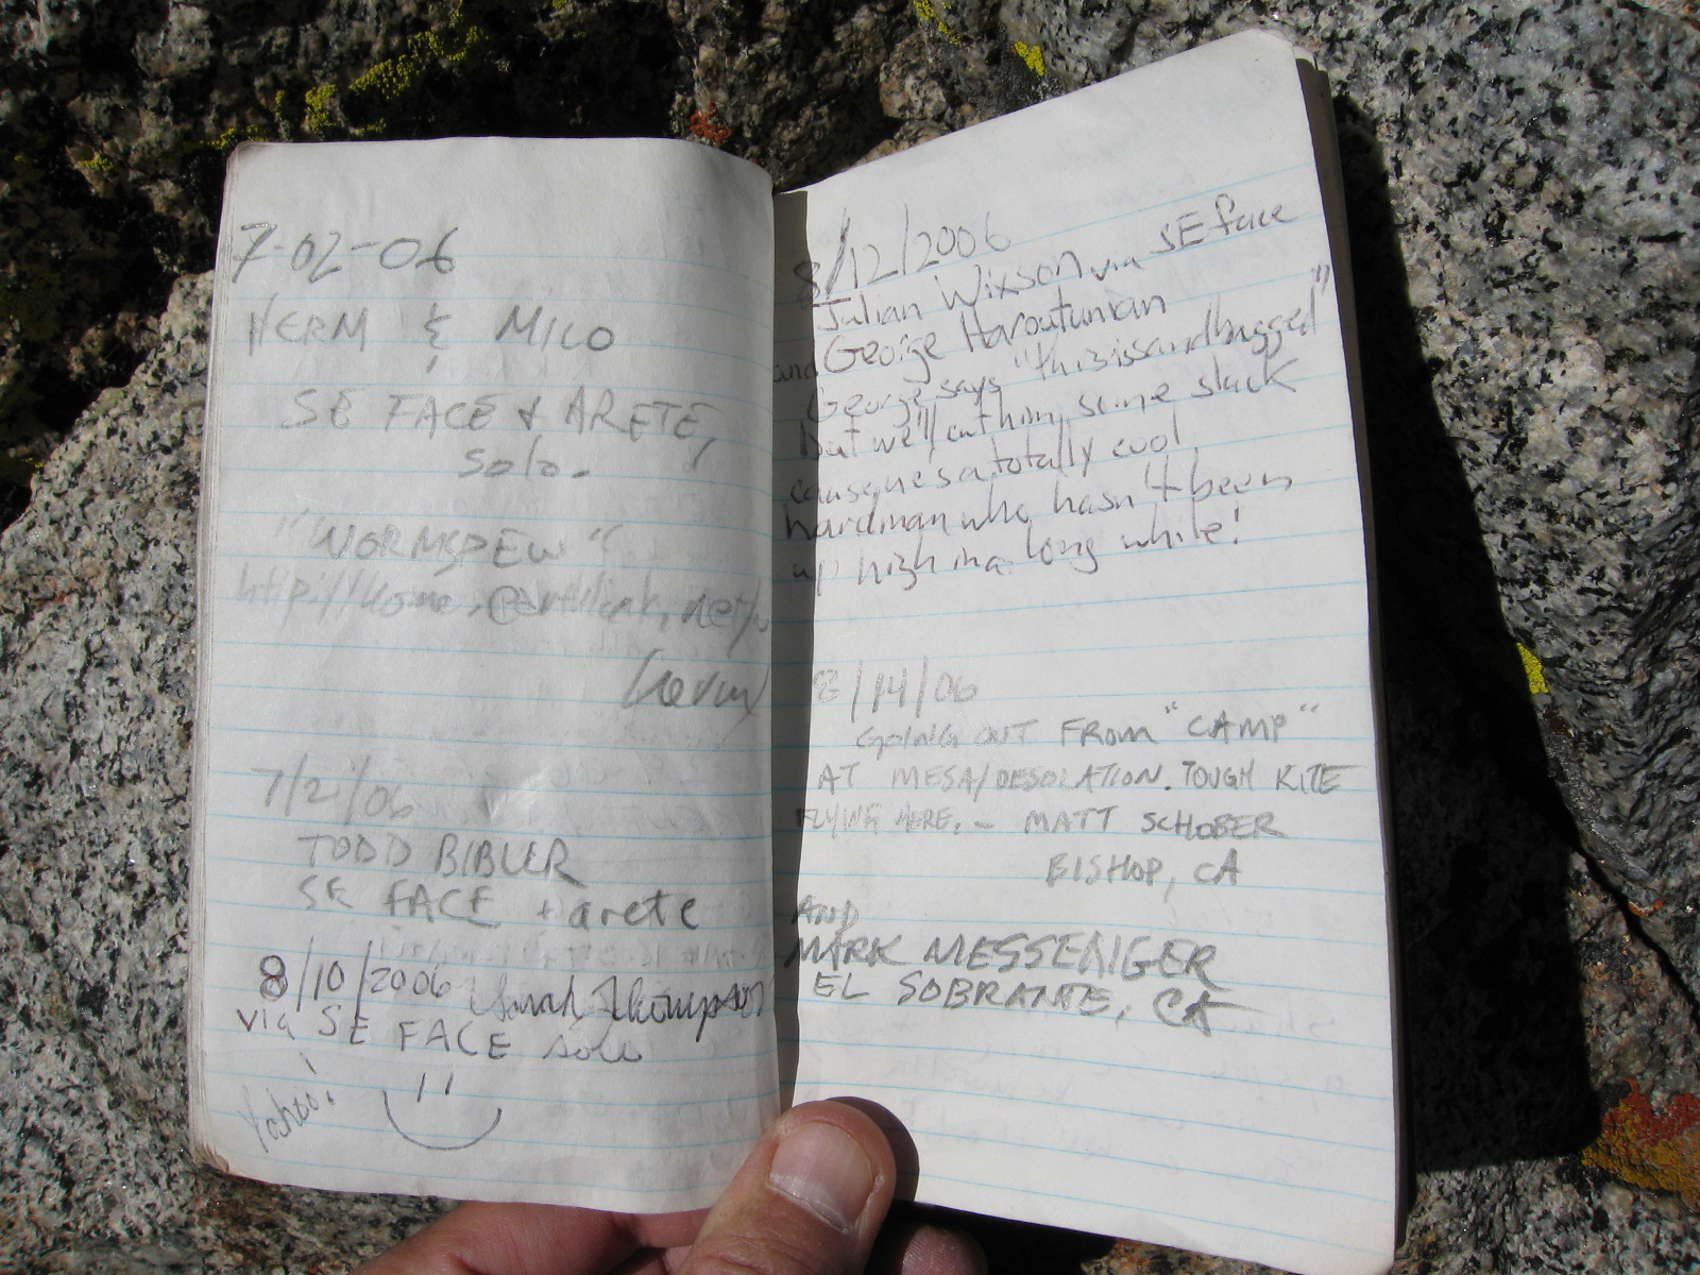 7-02-06
HERM & MILO
SE FACE & ARETE,
solo.
"WORMSPEW"
http://home.earthlink.net/
7/21/06
TODD BIBLER
SE FACE + arete
8/10/2006 Sarah Thompson
via SE FACE solo
Yahoo!
8/12/2006
Julian Wixson via SE face
and George Haroutunian
George says "this is sandbagged"
but we'll cut him some slack
cause he's a totally cool
hardman who hasn't been
up high in a long while!
8/14/06
GOING OUT FROM "CAMP"
AT MESA/DESOLATION. TOUGH KITE
FLYING HERE. - MATT SCHOBER
BISHOP, CA
AND
MARK MESSENGER
EL SOBRANTE, CA